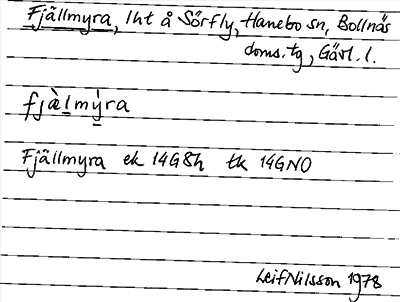 Fjällmyra, lht å Sörfly, Hanebo sn, Bollnäs
doms.tg, Gävl. l.
fjàl̲mỳ̤ra
Fjällmyra ek 14G8h tk 14GNO
Leif Nilsson 1978